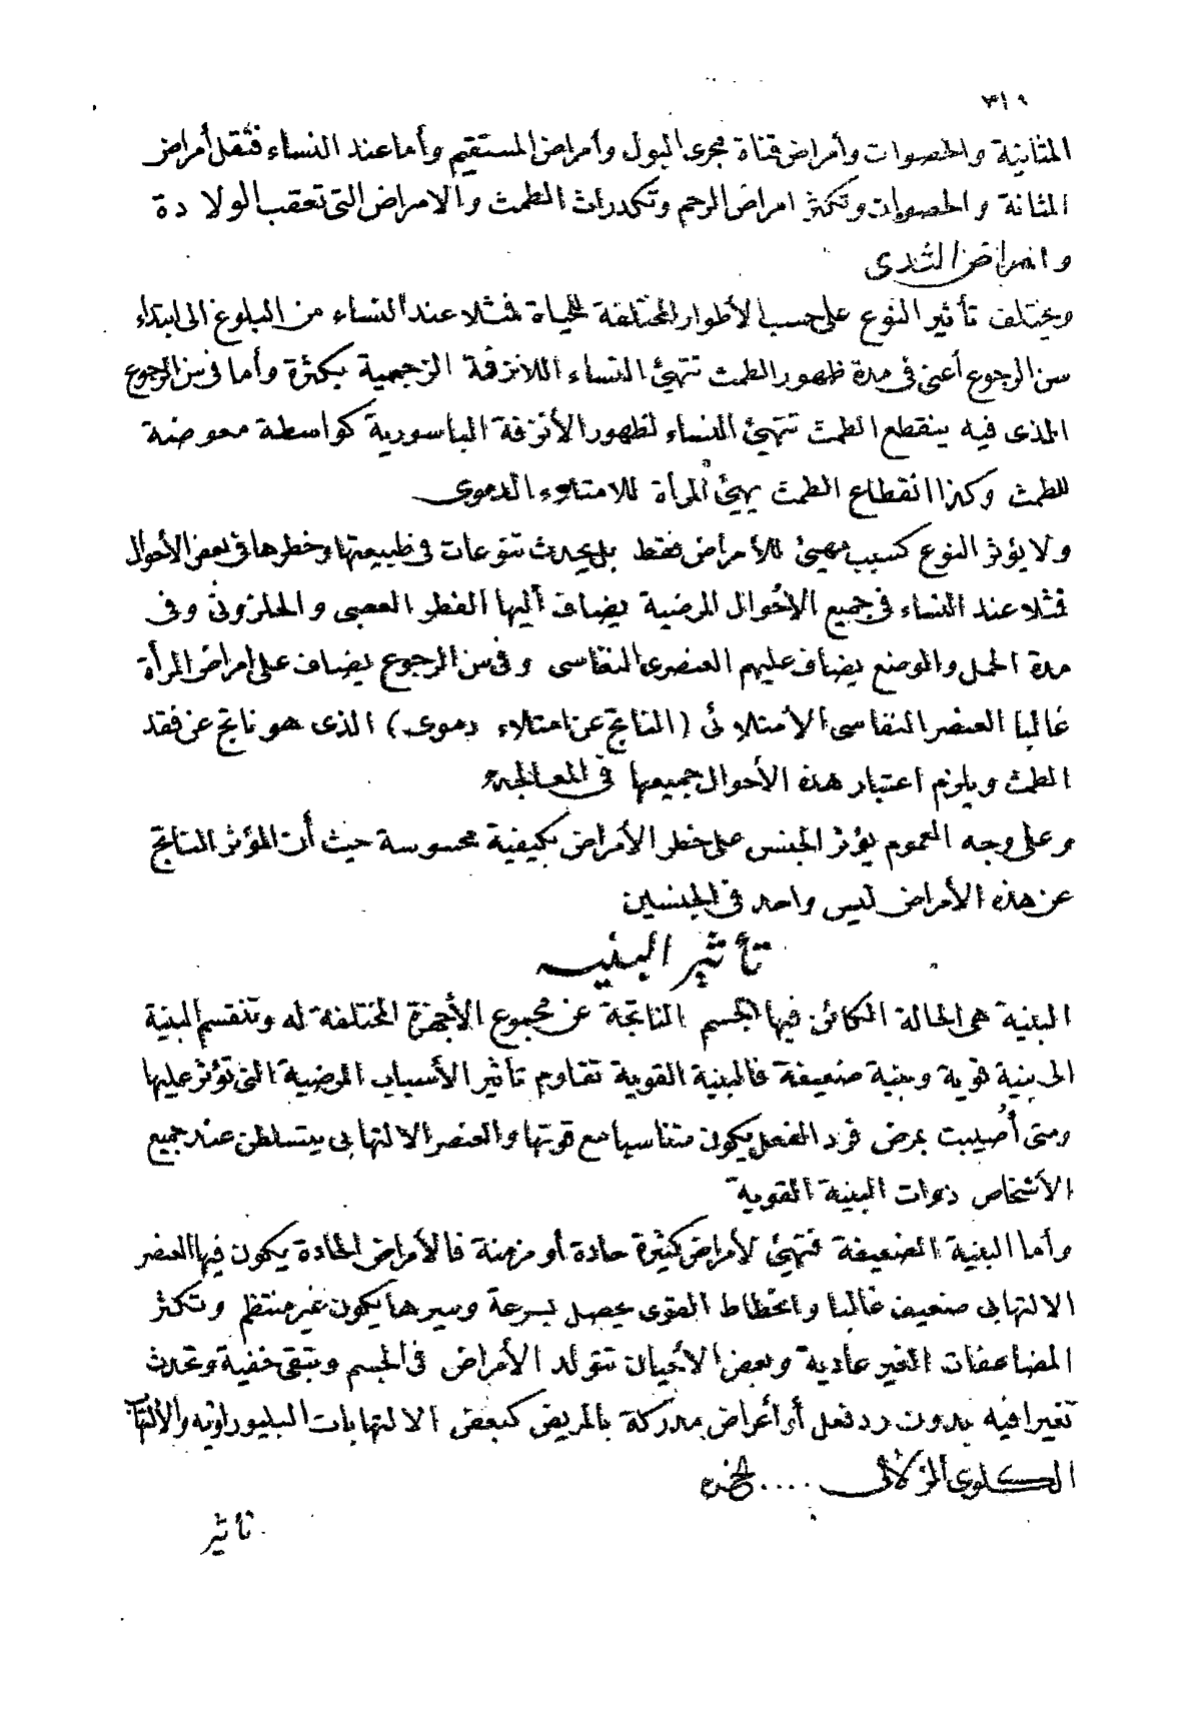 ٣١٩
المثانية والحصوات وأمراض قناة مجرى البول وأمراض المستقيم وأما عند النساء فتقل أمراض
المثانة والحصوات وتكثر امراض الرحم وتكدرات الطمث والامراض التى تعقب الولادة
وامراض الثدى
ويختلف تأثير النوع على حسب الأطوار المختلفة للحياة فمثلا عند النساء من البلوغ الى ابتداء
سن الرجوع أعنى فى مدة ظهور الطمث تتهيئ النساء اللانزفة الرحمية بكثرة وأما فى سن الرجوع
الذى فيه ينقطع الطمث تتهيئ النساء لظهور الأنزفة الباسورية كواسطة معوضة
للطمث وكذا انقطاع الطمث يهيئ المرأة للامتلاء الدموى
ولا يؤثر النوع كسبب مهيئ للأمراض فقط بل يحدث تنوعات فى طبيعتها وخطرها فى بعض الأحوال
فمثلا عند النساء فى جميع الأحوال المرضية يضاف اليها الفطر العصبى والحلزونى وفى
مدة الحمل والوضع يضاف عليهم العنصرى النفاسى وفى سن الرجوع يضاف على امراض المرأة
غالبا العنصر النفاسى الأمتلائى (الناتج عن امتلاء دموى) الذى هو ناتج عن فقد
الطمث ويلزم اعتبار هذه الأحوال جميعها فى المعالجة
وعلى وجه العموم يؤثر الجنس على خطر الأمراض بكيفية محسوسة حيث أن المؤثر الناتج
عن هذه الأمراض ليس واحد فى الجنسين
تأثير البنيه
البنية هى الحالة الكائن فيها الجسم الناتجة عن مجموع الأجهزة المختلفة له وتنقسم البنية
الى بنية قوية وبنية ضعيفة فالبنية القوية تقاوم تأثير الأسباب المرضية التى تؤثر عليها
ومتى أصيبت بمرض فرد الفعل يكون متناسبا مع قوتها والعنصر الالتهابى يتسلطن عند جميع
الأشخاص ذوات البنية القوية
وأما البنية الضعيفة فتهيئ لأمراض كثيرة حادة أو مزمنة فالأمراض الحادة يكون فيها العنصر
الالتهابى ضعيف غالبا وانحطاط القوى يحصل بسرعة وسيرها يكون غير منتظم وتكثر
المضاعفات الغير عادية وبعض الأحيان تتولد الأمراض فى الجسم وتبقى خفية وتحدث
تغيرا فيه بدون رد فعل أو أعراض مدركة بالمريض كبعض الالتهابات البليوراويه والألتهاب
الكلوى الزلالى ....
تأثير